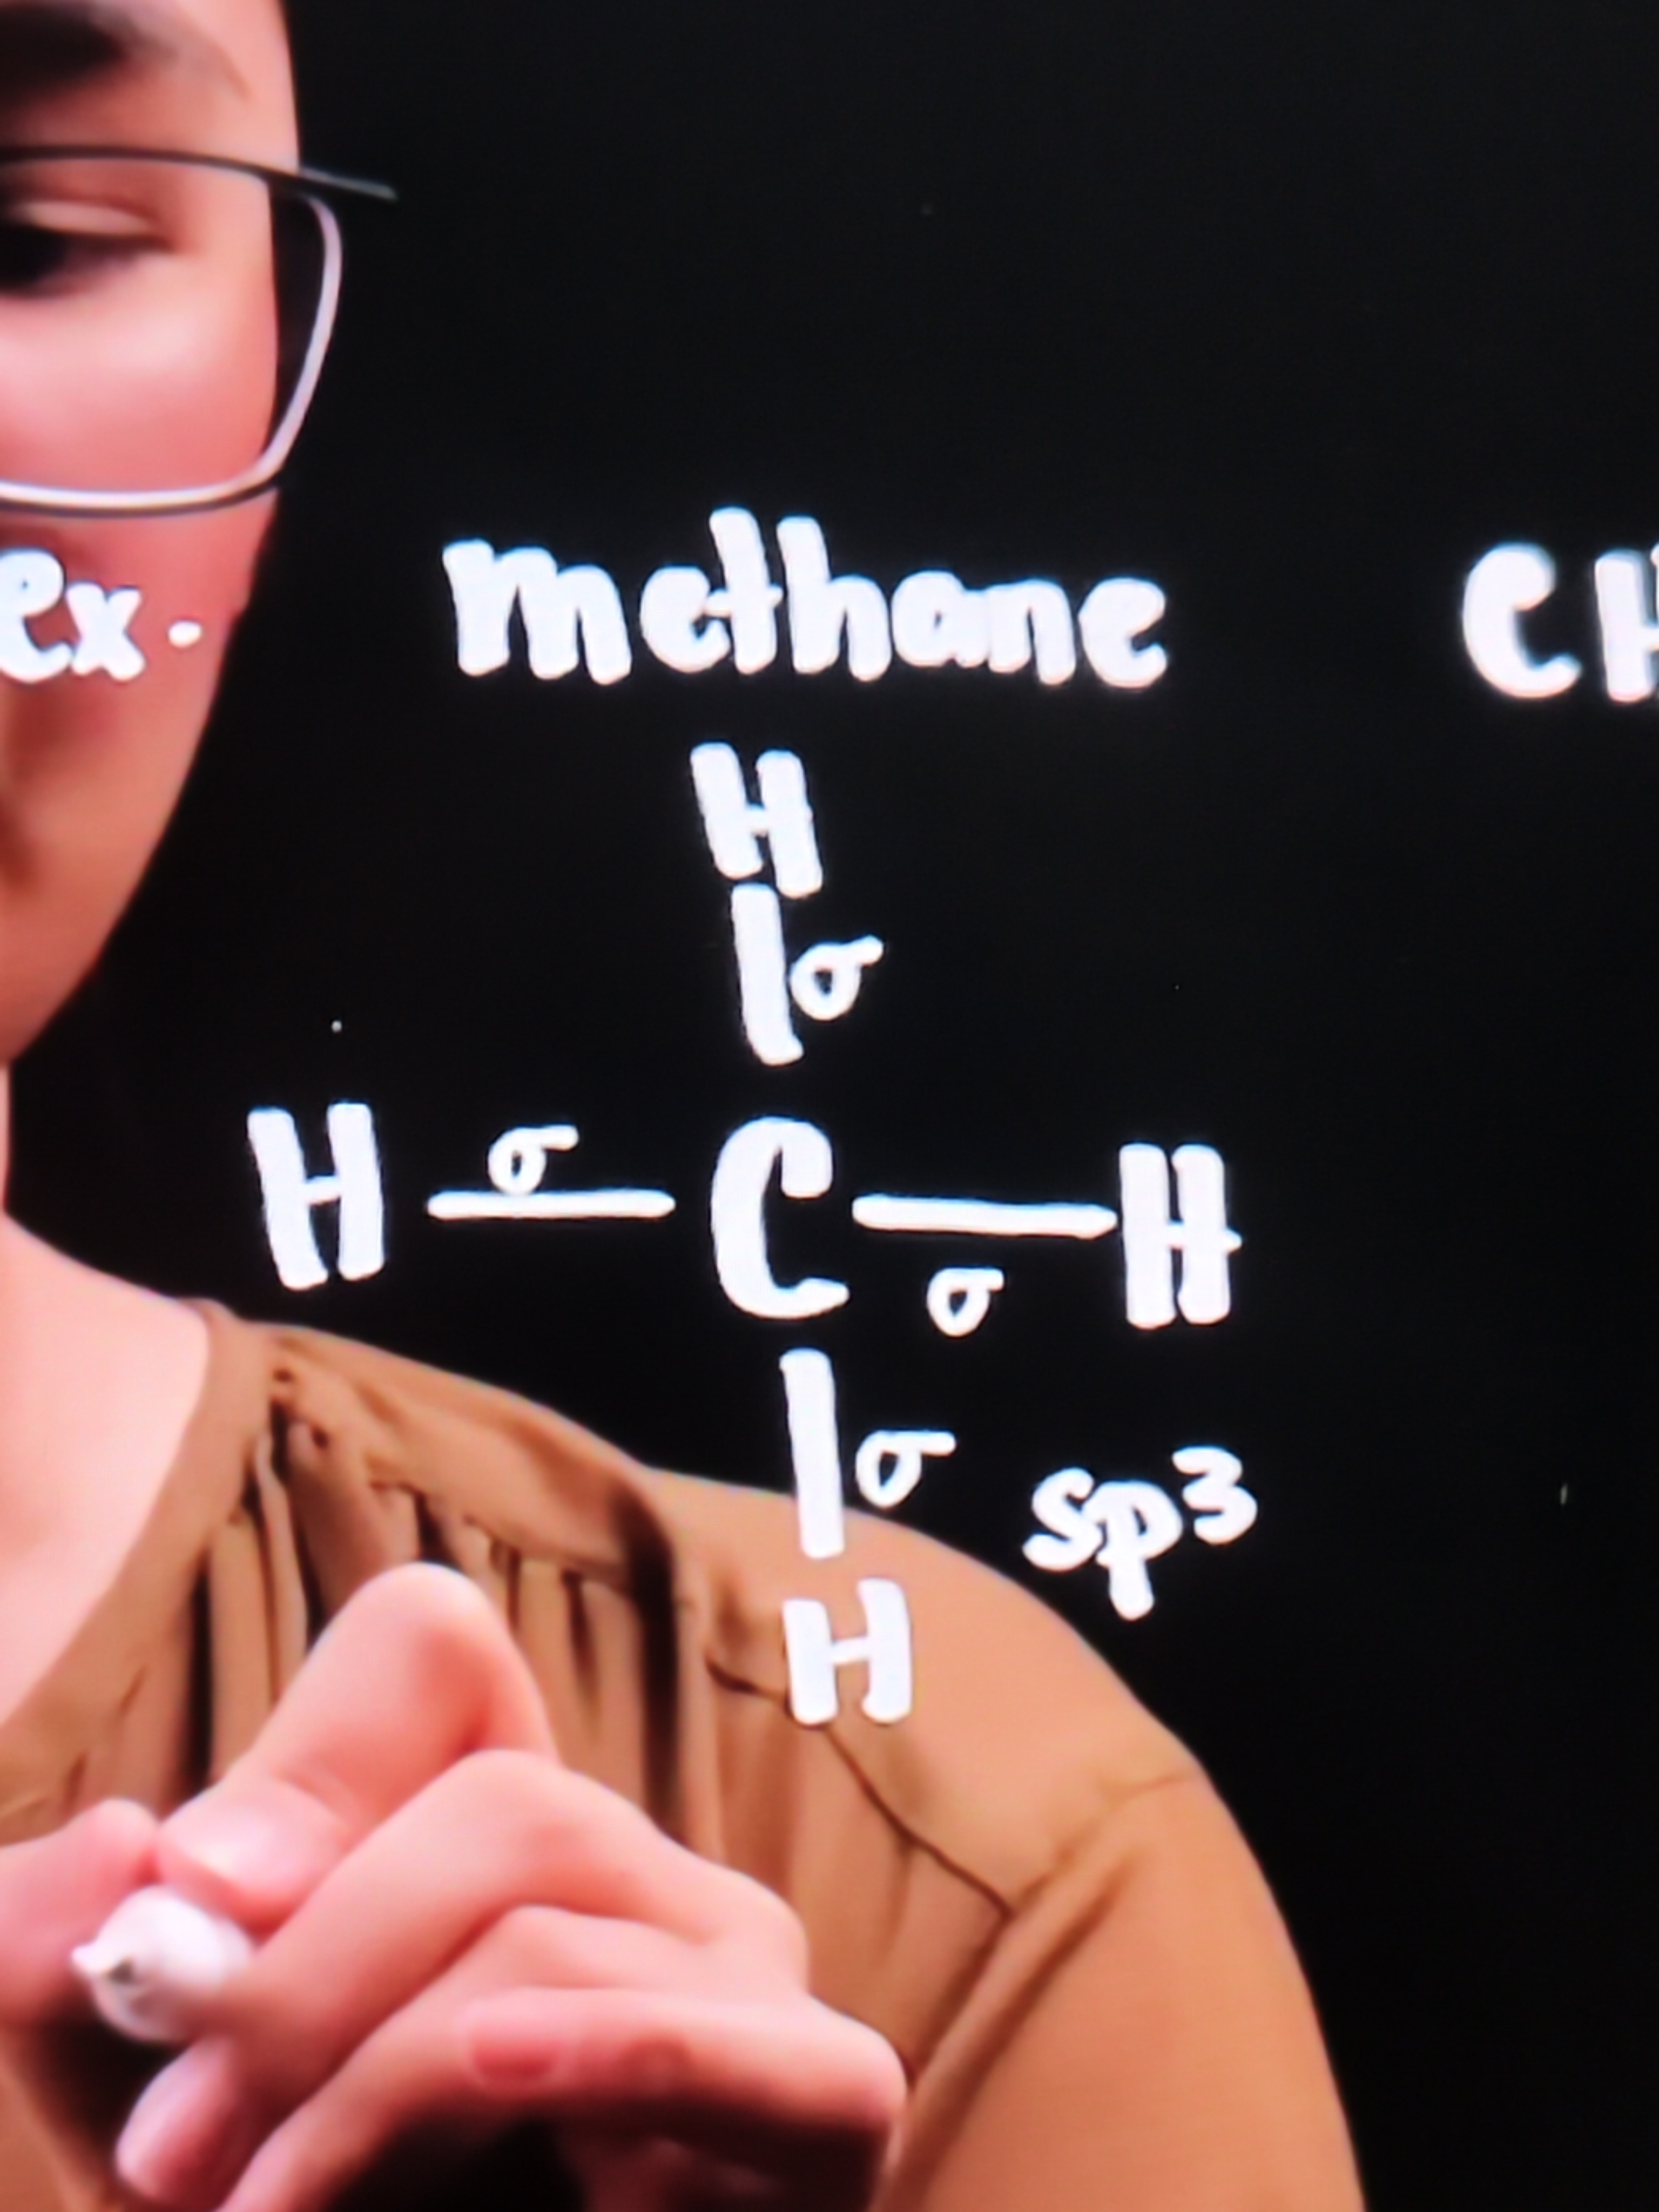 ex. methane CH
H
σ
H σ C H
σ
σ sp³
H